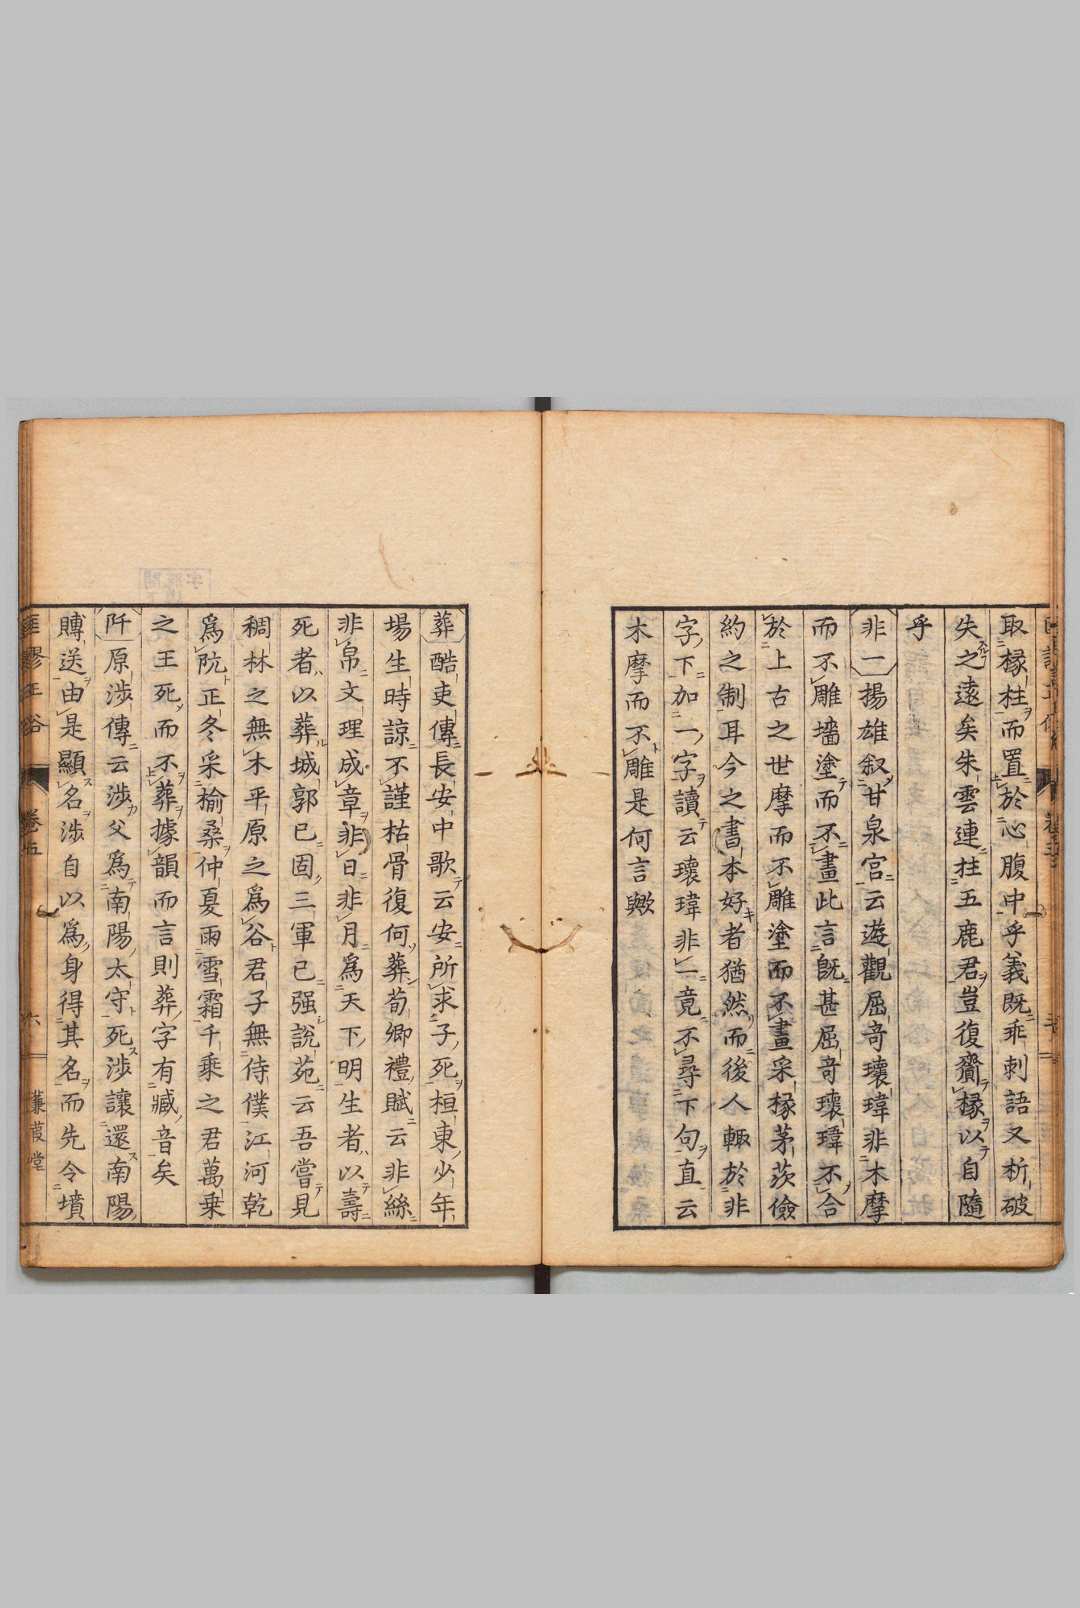 取椽柱而置於心腹中乎義既乖刺語又析破
失之遠矣朱雲連拄五鹿君豈復齎椽以自隨
乎
非一揚雄叙甘泉宮云遊觀屈奇瓌瑋非木摩
而不雕墻塗而不畫此言既甚屈奇瓌瑋不合
於上古之世摩而不雕塗而不畫采椽茅茨儉
約之制耳今之書本好者猶然而後人輙於非
字下加一字讀云瓌瑋非一竟不尋下句直云
木摩而不雕是何言歟
葬酷吏傳長安中歌云安所求子死桓東少年
場生時諒不謹枯骨復何葬荀卿禮賦云非絲
非帛文理成章非日非月為天下明生者以壽
死者以葬城郭已固三軍已强說苑云吾嘗見
稠林之無木平原之為谷君子無侍僕江河乾
為阬正冬采榆桑仲夏雨雪霜千乘之君萬乗
之王死而不葬據韻而言則葬字有臧音矣
阡原涉傳云涉父為南陽太守死涉讓還南陽
賻送由是顯名涉自以為身得其名而先令墳
匡謬正俗 卷五 六 蒹葭堂